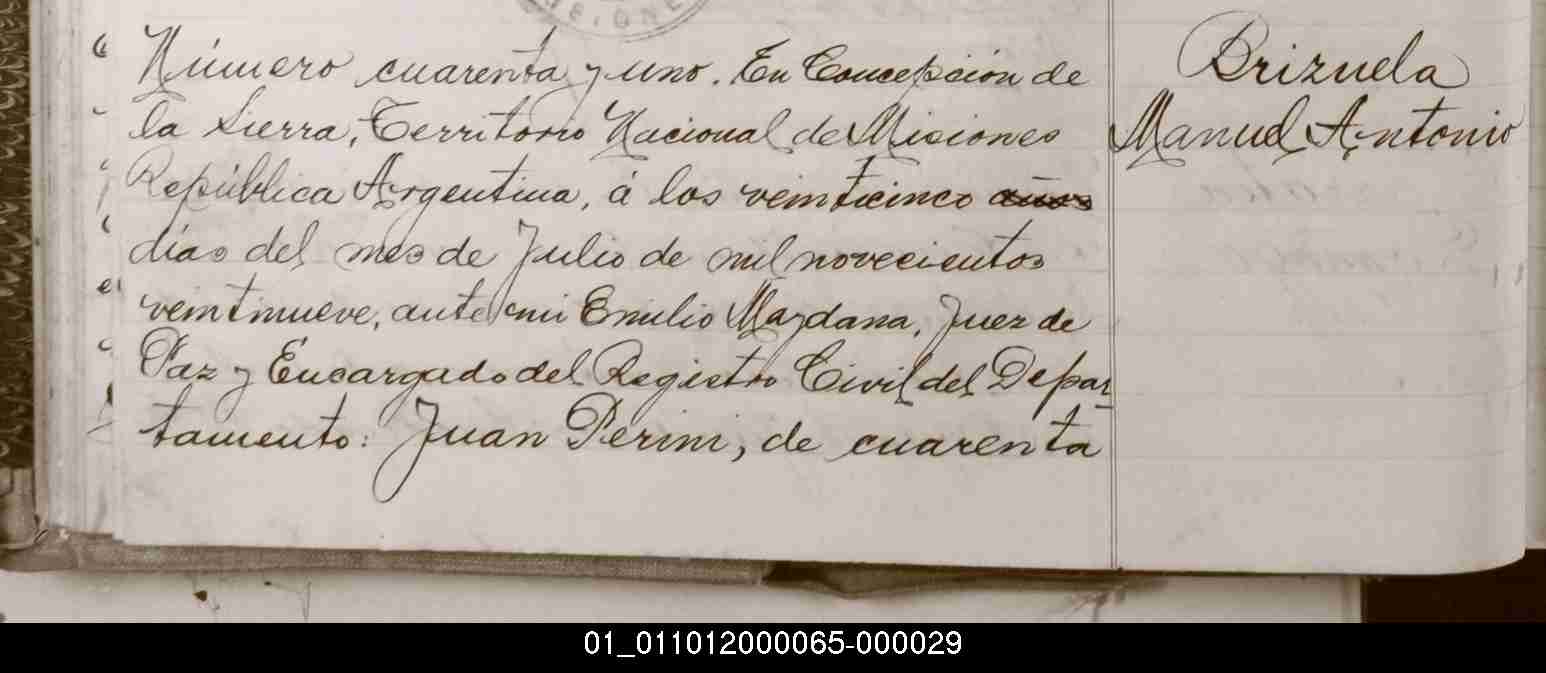 Número cuarenta y uno. En Concepción de
la Sierra, Territorio Nacional de Misiones
República Argentina, á los veinticinco años
días del mes de Julio de mil novecientos
veintinueve, ante mi Emilio Maydana, Juez de
Paz y Encargado del Registro Civil del Depar
tamento: Juan Perini, de cuarenta
Brizuela
Manuel Antonio
01_011012000065-000029